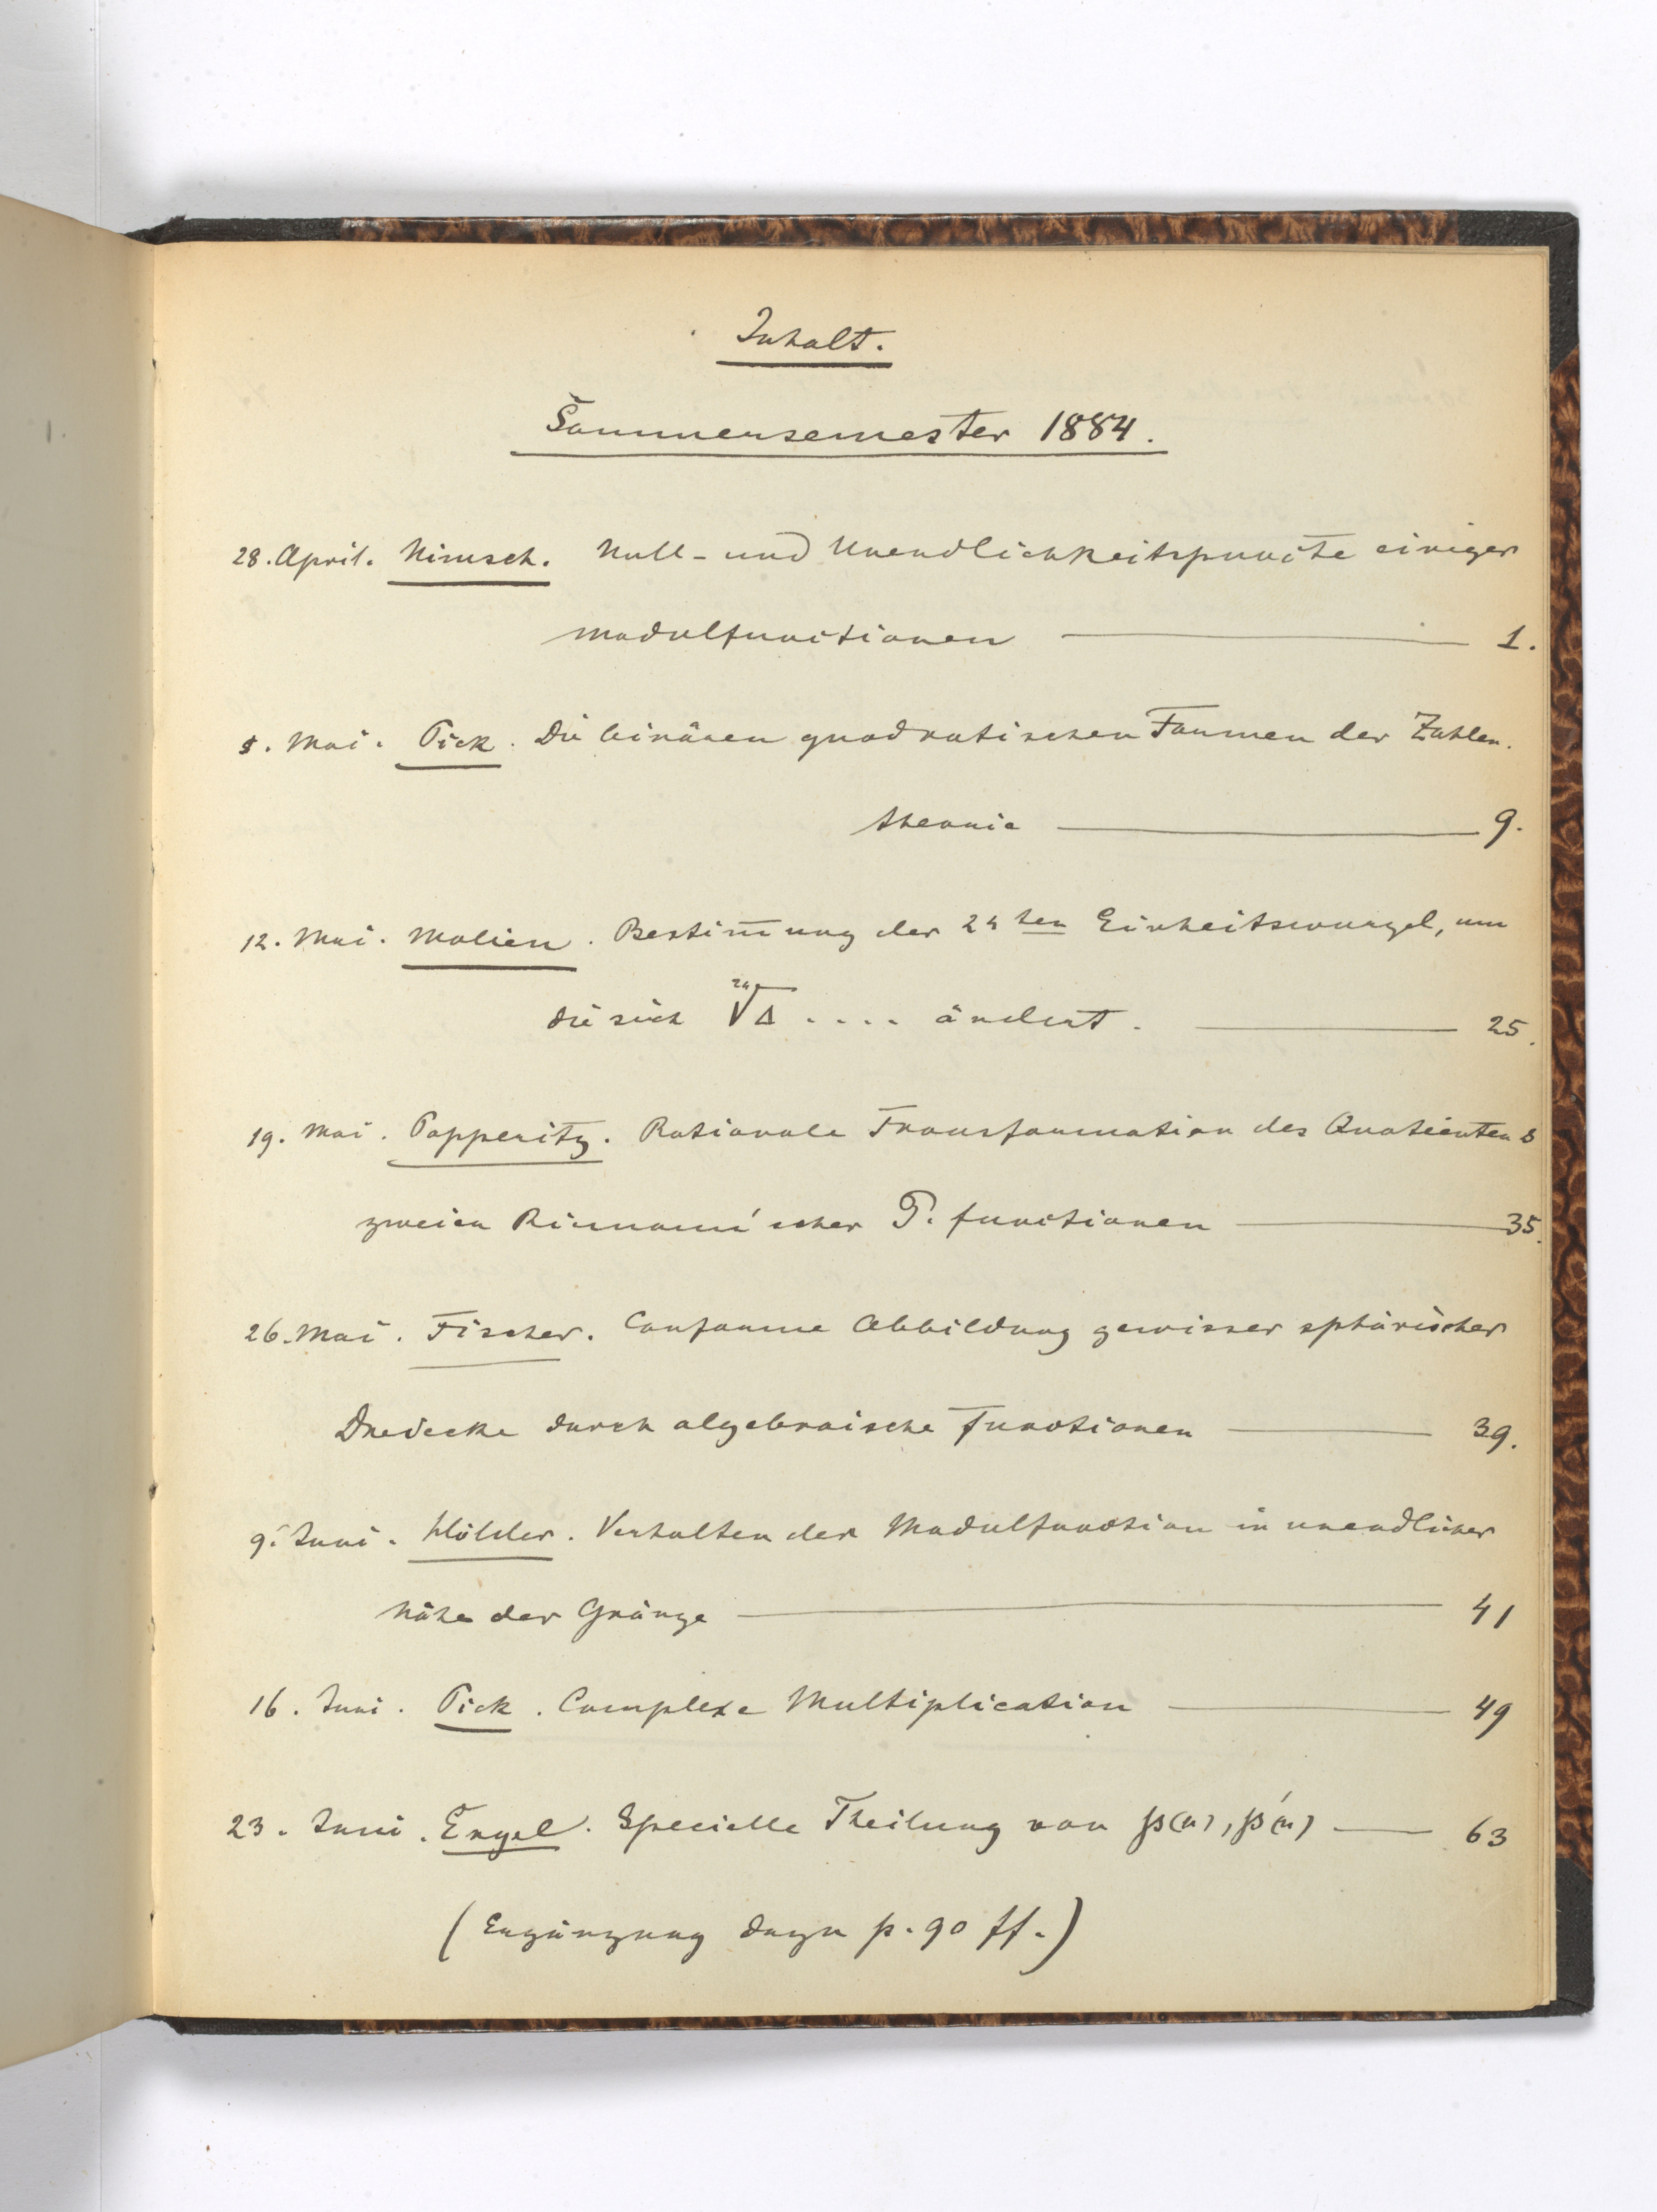 Inhalt.
Sommersemester 1884.
28. April. Nimsch. Null- und Unendlichkeitspuncte einiger
Modulfunctionen — 1.
5. Mai. Pick. Die binären quadratischen Formen der Zahlen-
theorie — 9.
12. Mai. Molien. Bestim̄ung der 24ten Einheitswurzel, um
die sich ²⁴√Δ .... ändert. — 25.
19. Mai. Papperitz. Rationale Transformation des Quotienten s
zweier Riemann'scher P. functionen — 35.
26. Mai. Fischer. Conforme Abbildung gewisser sphärischer
Dreiecke durch algebraische Functionen — 39.
9. Juni. Hölder. Verhalten der Modulfunction in unendlicher
Nähe der Gränze — 41
16. Juni. Pick. Complexe Multiplication — 49
23. Juni. Engel. Specielle Theilung von ℘(u), ℘'(u) — 63
(Ergänzung dazu p. 90 ff.)